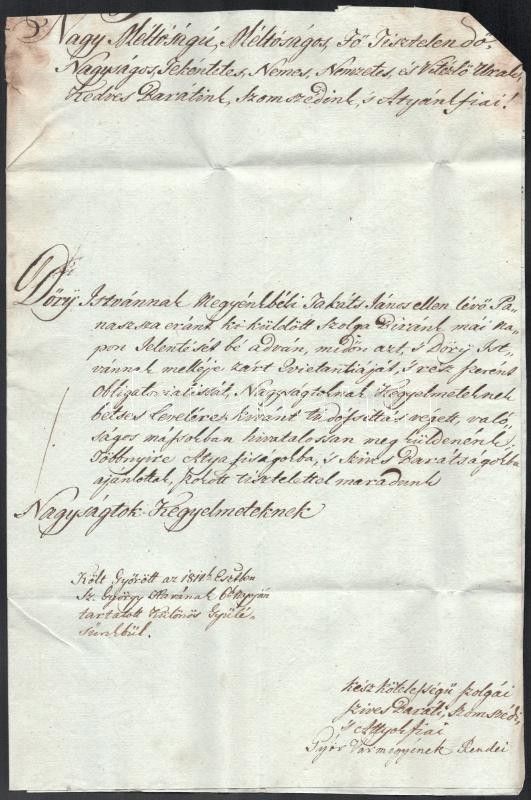 Nagy Méltóságú, Méltóságos, Fő Tisztelendő,
Nagyságos, Tekéntetes, Nemes, Nemzetes, és Vitézlő Urak,
Kedves Barátink, Szomszedink, 's Atyánkfiai!
Dőry Istvánnak Megyénkbéli Takáts János ellen lévő Pa-
naszsza eránt ki küldött Szolga Biránk mai na-
pon Jelentését bé adván, midőn azt, 's Dőry Ist-
vánnak melléje zárt Quietantiáját, 's rész szerént
obligatorialissát, Nagyságtoknak Kegyelmeteknek
bétses Levelére kivánt tudósittás végett, való-
ságos mássokban hivatalossan meg küldenénk:
Többnyire Atyafiúságokba, 's szives Barátságokba
ajánlottak, tisztelettel maradunk
Nagyságtok Kegyelmeteknek
Költ Győrött az Esztben
Sz. György Havának 6k napján
tartatott Különös Gyülé-
sünkbül.
kész kötelességü szolgái
szives Baráti, Szomszédi,
's Attyokfiai
Győr Vármegyének Rendei